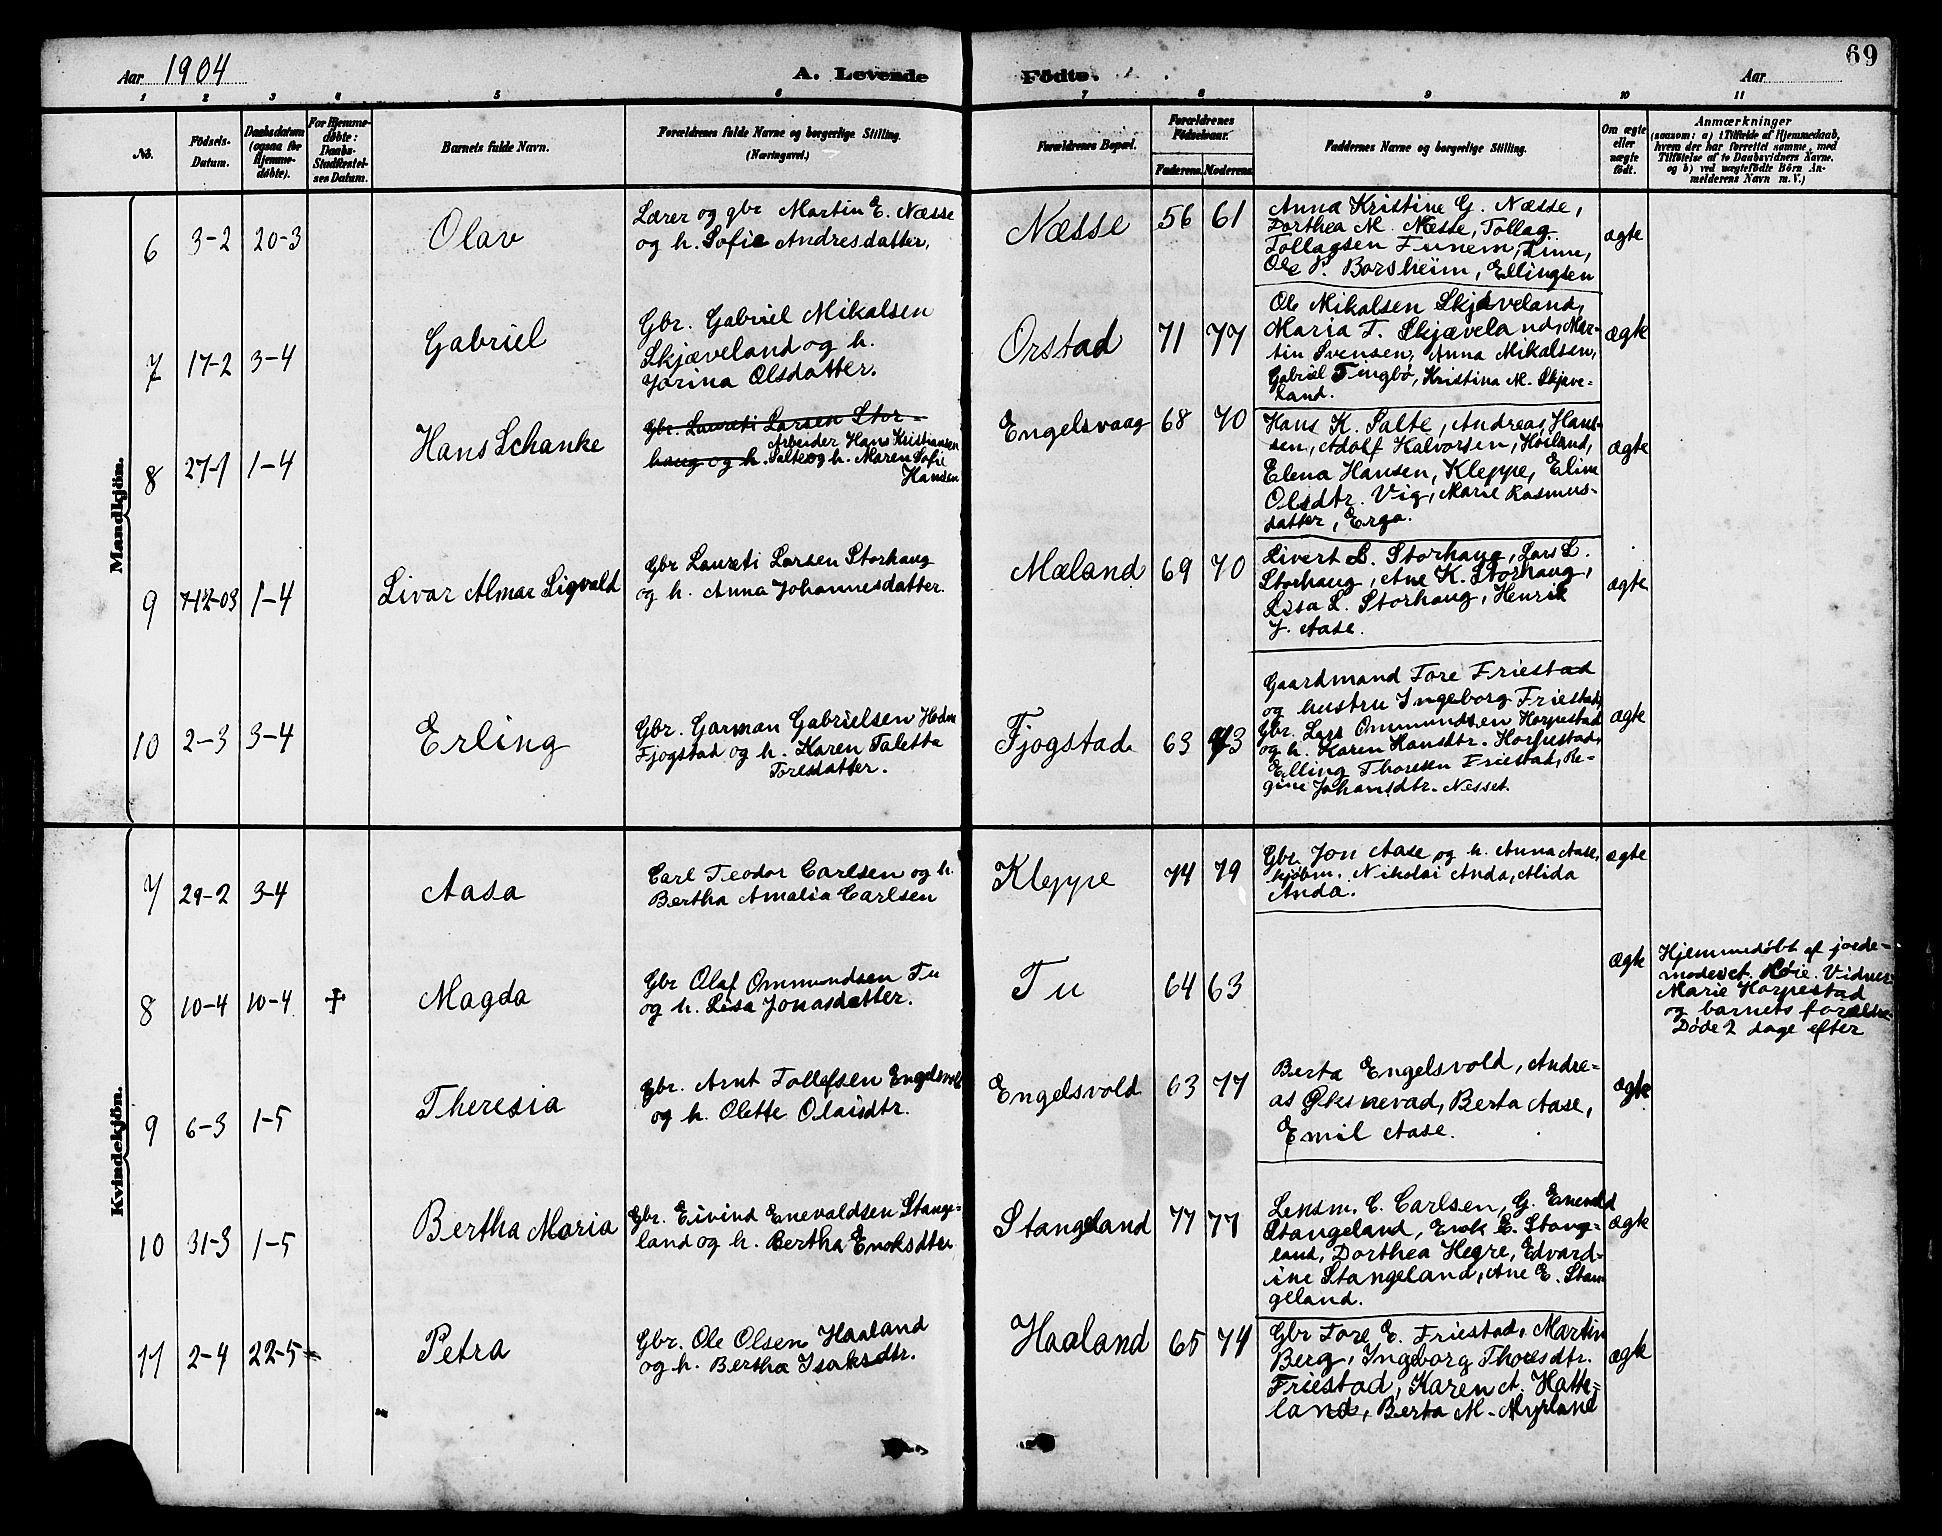 Aar 1904
A. Levende Fødte.
Aar
69
1 2 3 4 5 6 7 8 9 10 11
No.
Fødsels-Datum.
Daabsdatum (ogsaa for Hjemmedøbte).
For Hjemmedøbte: Daabs-Stadfæstelses Datum.
Barnets fulde Navn.
Forældrenes fulde Navne og borgerlige Stilling. (Næringsvei.)
Forældrenes Bopæl.
Forældrenes Fødselsaar.
Faderens. Moderens.
Faddernes Navne og borgerlige Stilling.
Om ægte eller uægte født.
Anmærkninger
(saasom: a) i Tilfælde af Hjemmedaab, hvem der har forrettet samme, med Tilføielse af to Daabsvidners Navne, og b) ved uægtefødte Børn Anmelderens Navn m. V.)
Mandkjøn.
6 3-2 20-3 Olav
Lærer og gbr Martin E. Næsse
og h. Sofie Andresdatter,
Næsse 56 61
Anna Kristine G. Næsse,
Dorthea M. Næsse, Tollag
Tollagsen Tunem, Time,
Ole P. Borsheim, Ellingsen
ægte
7 17-2 3-4 Gabriel
Gbr. Gabriel Mikalsen
Skjæveland og h.
Jorina Olsdatter.
Orstad 71 77
Ole Mikalsen Skjæveland,
Maria T. Skjæveland, Mar-
tin Svensen, Anna Mikalsen,
Gabriel Tingbø, Kristina M. Skjæve-
land.
ægte
8 27-1 1-4 Hans Schanke
Gbr. Laureti Larsen Stor-
Arbeider Hans Kristiansen
haug og h. Salte og h. Maren Sofie
Hansen
Engelsvaag 68 70
Hans K. Salte, Andreas Han-
sen, Adolf Halvorsen, Høiland,
Elena Hansen, Kleppe, Eline
Olsdtr. Vig, Marie Rasmus-
datter, Erga.
ægte
9 7-12-03 1-4 Sivar Almar Sigvald
Gbr Laureti Larsen Storhaug
og h. Anna Johannesdatter.
Mæland 69 70
Sivert L. Storhaug, Lars L.
Storhaug, Ane K. Storhaug,
Lisa L. Storhaug, Henrik
J. Aase.
ægte
10 2-3 3-4 Erling
Gbr. Garman Gabrielsen
Fjogstad og h. Karen Taletta
Toresdatter.
Fjogstad 63 73
Gaardmand Tore Friestad
og hustru Ingeborg Friestad,
Gbr. Lars Ommundsen Horpestad
og h. Karen Hansdtr. Horpestad,
Elling Thoresen Friestad, Re-
gine Johansdtr. Nesset.
ægte
Kvindekjøn.
7 29-2 3-4 Aasa
Carl Teodor Carlsen og h.
Bertha Amalia Carlsen
Kleppe 74 79
Gbr. Jon Aase og h. Anna Aase,
kjøbm. Nikolai Anda, Alida
Anda.
ægte
8 10-4 10-4 † Magda
Gbr Olaf Ommundsen Tu
og h. Lisa Jonasdatter.
Tu 64 63
ægte
Hjemmedøbt af jorde-
moder Høie. Vidner
Marie Horpestad
og barnets forældre
Døde 2 dage efter
9 6-3 1-5 Theresia
Gbr. Arnt Tollefsen Engelsvold
og h. Olette Olausdtr.
Engelsvold 63 77
Berta Engelsvold, Andre-
as Øksnevad, Berta Aase,
Emil Aase.
ægte
10 31-3 1-5 Bertha Maria
Gbr. Eivind Enevaldsen Stange-
land og h. Bertha Enoksdtr
Stangeland 77 77
Lensm. C. Carlsen, G. Enevald
Stangeland, Enok E. Stange-
land, Dorthea Hegre, Edvard-
ine Stangeland, Ane E. Stan
geland.
ægte
11 2-4 22-5 Petra
Gbr. Ole Olsen Haaland
og h. Bertha Isaksdtr.
Haaland 65 74
Gbr Tore E. Friestad, Martin
Berg, Ingeborg Thoresdtr.
Friestad, Karen A. Hatte-
land, Berta M. Myrland
ægte